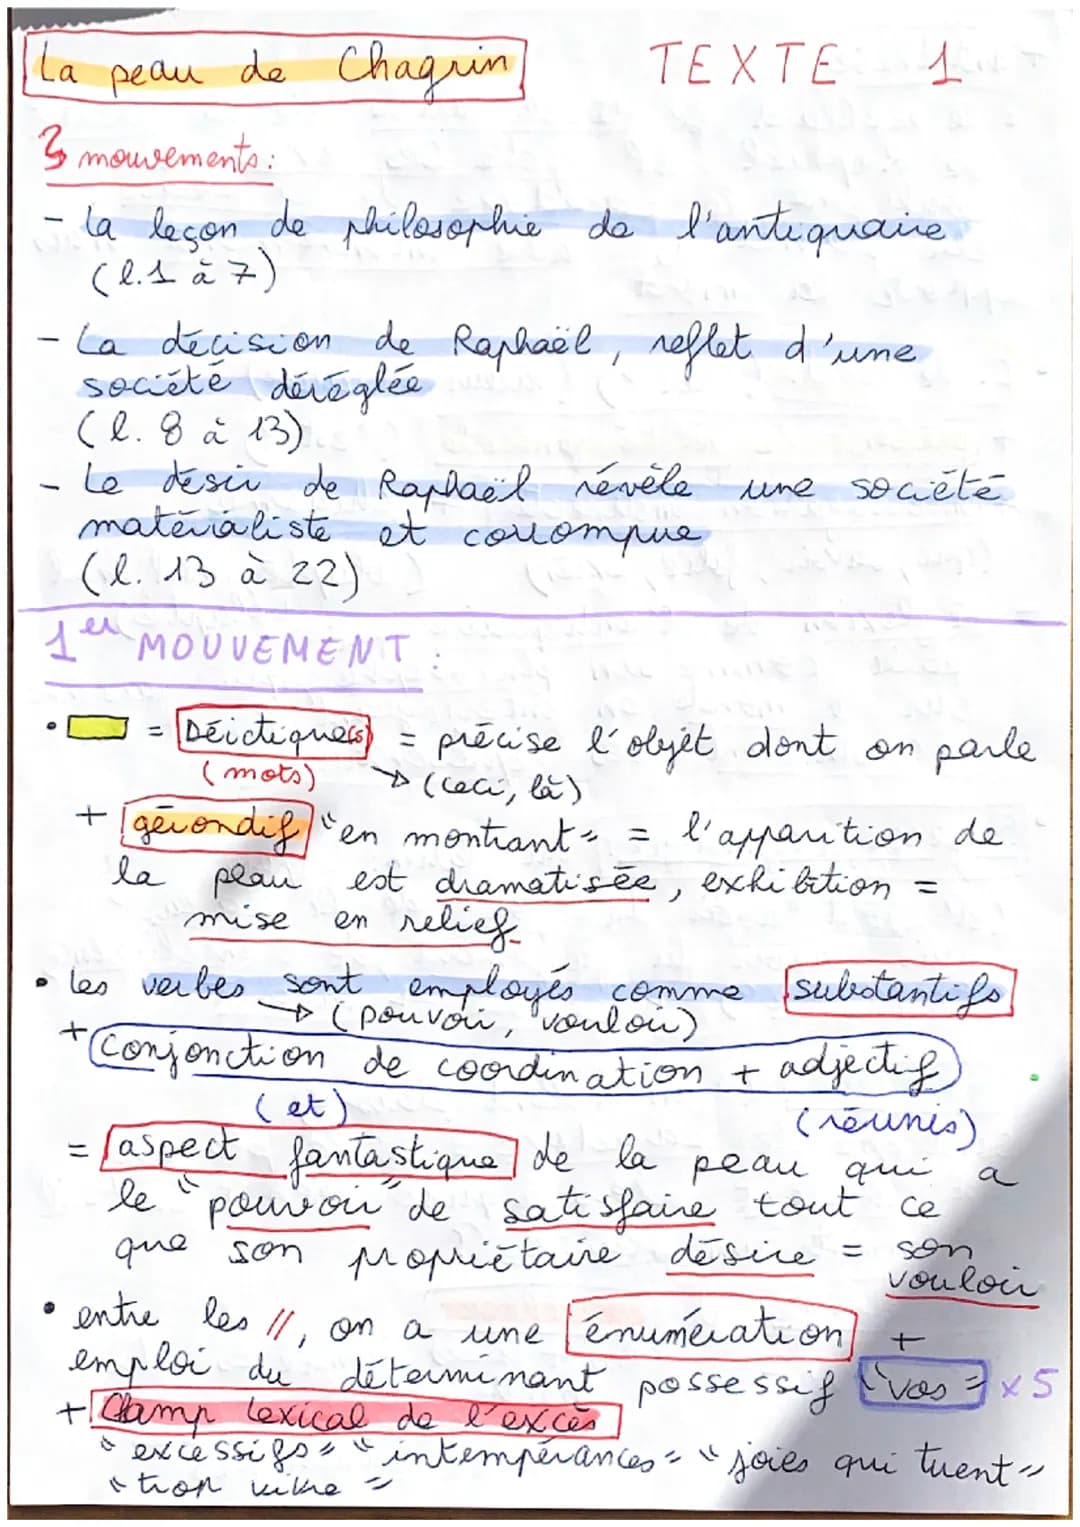 La peau de Chagrin
TEXTE 1
3 mouvements :
- La leçon de philosophie de l'antiquaire
(l.1 à 7)
- La décision de Raphaël, reflet d'une
société déréglée
(l. 8 à 13)
- Le désir de Raphaël révèle une société
matérialiste et corrompue
(l. 13 à 22)
1er MOUVEMENT :
• = Déictique(s) = précise l'objet dont on parle
(mots) → (ceci, là)
+ gérondif "en montrant" = l'apparition de
la peau est dramatisée, exhibition =
mise en relief.
• les verbes sont employés comme substantifs
→ (pouvoir, vouloir)
+ conjonction de coordination + adjectif
(et) (réunis)
= aspect fantastique de la peau qui a
le "pouvoir" de satisfaire tout ce
que son propriétaire désire = son
vouloir
• entre les //, on a une énumération +
emploi du déterminant possessif "vos" x5
+ Champ lexical de l'excès
"excessifs" "intempérances" "joies qui tuent"
"trop vivre"